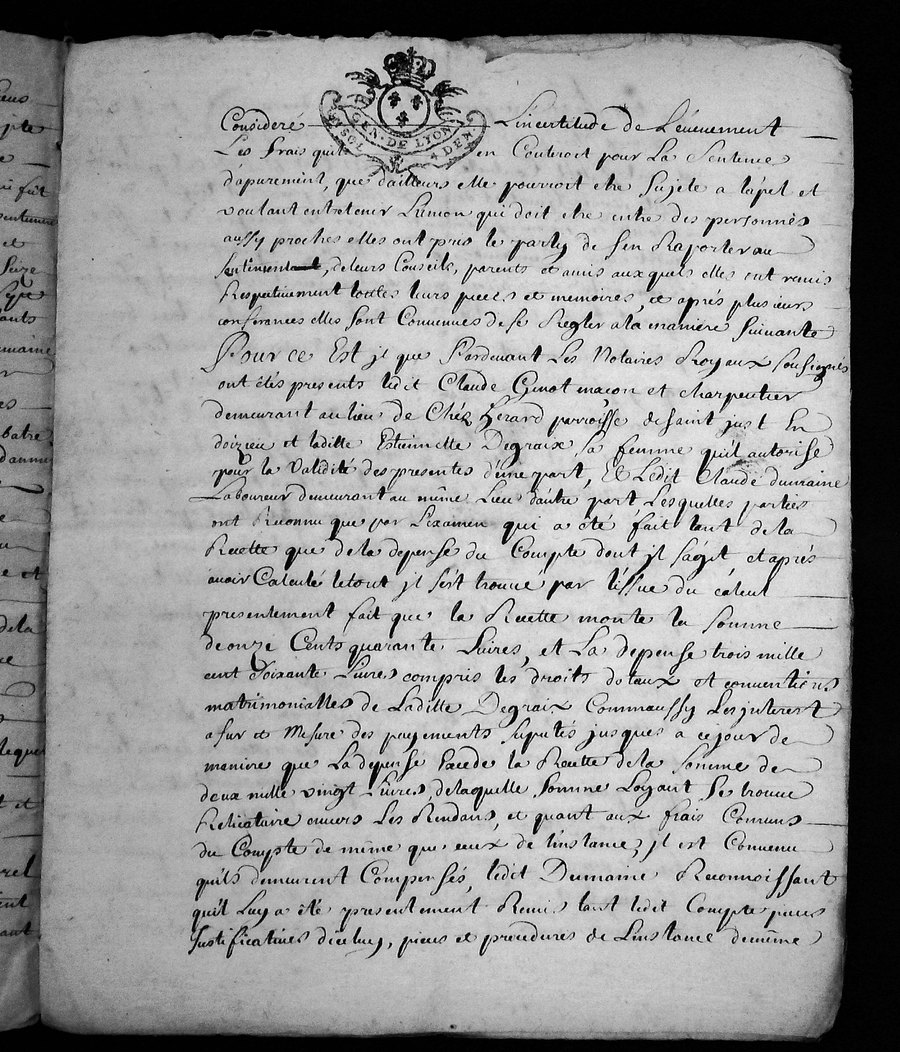 GEN. DE LYON
Consideré L'incertitude de L'évenement
Les frais quil en Couteroit pour La Sentence
dapurement, que dailleurs elle pourroit etre Sujete a lapel et
voulant entretenir L'union qui doit etre entre des personnes
aussy proches elles ont pris le party de s'en Raporter au
sentiment, de leurs Conseils, parents et amis aux quels elles ont remis
Respectivement toutes leurs pieces et memoires, et aprés plusieurs
conferances elles sont Convenues de se Regler a la maniere Suivante
Pour ce Est jl que Pardevant Les Notaires Royaux soussignés
ont étés presents ledit Claude Ginot macon et charpentier
demeurant au lieu de Chéz Herard parroisse de saint just En
doizieu et laditte Estiennette Degraix sa femme quil autorise
pour la validité des presentes d'une part, Et Ledit Claude dumaine
Laboureur demeurant au même Lieu d'autre part, Lesquelles parties
ont Reconnu que par L'examen qui a été fait tant de la
Recette que de la depense du Compte dont jl sagit et aprés
avoir Calculé le tout jl s'est trouvé par l'issue du calcul
presentement fait que la Recette monte la somme
de onze Cents quarante Livres, et La depense trois mille
cent soixante Livres compris les droits dotaux et conventions
matrimonialles de Laditte Degraix Comm'aussy Les jnterest
a fur et Mesure des payements suputés jusques a ce jour de
maniere que La depense Excede la Recette de la somme de
deux mille vingt Livres, de laquelle somme Loyant se trouve
Relicataire envers Les Rendans, et quant aux frais Comuns
du Compte de même que ceux de l'instance, jl est Convenu
quils demeurent Compensés, ledit Dumaine Reconnoissant
quil Luy a été presentement Remis tant ledit Compte pieces
Justificatives diceluy, pieces et procedures de L'instance de même